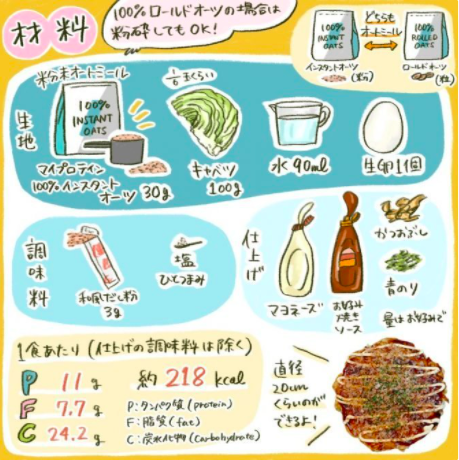 材料
100%ロールドオーツの場合は
粉砕してもOK!
どちらも
オートミール
100%
INSTANT
OATS
100%
ROLLED
OATS
インスタントオーツ
(粉)
ロールドオーツ
(粒)
生地
粉末オートミール
100%
INSTANT
OATS
マイプロテイン
100%インスタント
オーツ 30g
1/6玉くらい
キャベツ
100g
水 90ml
生卵1個
調味料
和風だし粉
3g
塩
ひとつまみ
仕上げ
マヨネーズ
お好み
焼き
ソース
かつおぶし
青のり
量はお好みで
1食あたり(仕上げの調味料は除く)
P 11g
F 7.7g
C 24.2g
約218kcal
P:タンパク質(protein)
F:脂質(fat)
C:炭水化物(carbohydrate)
直径
20cm
くらいのが
できるよ!